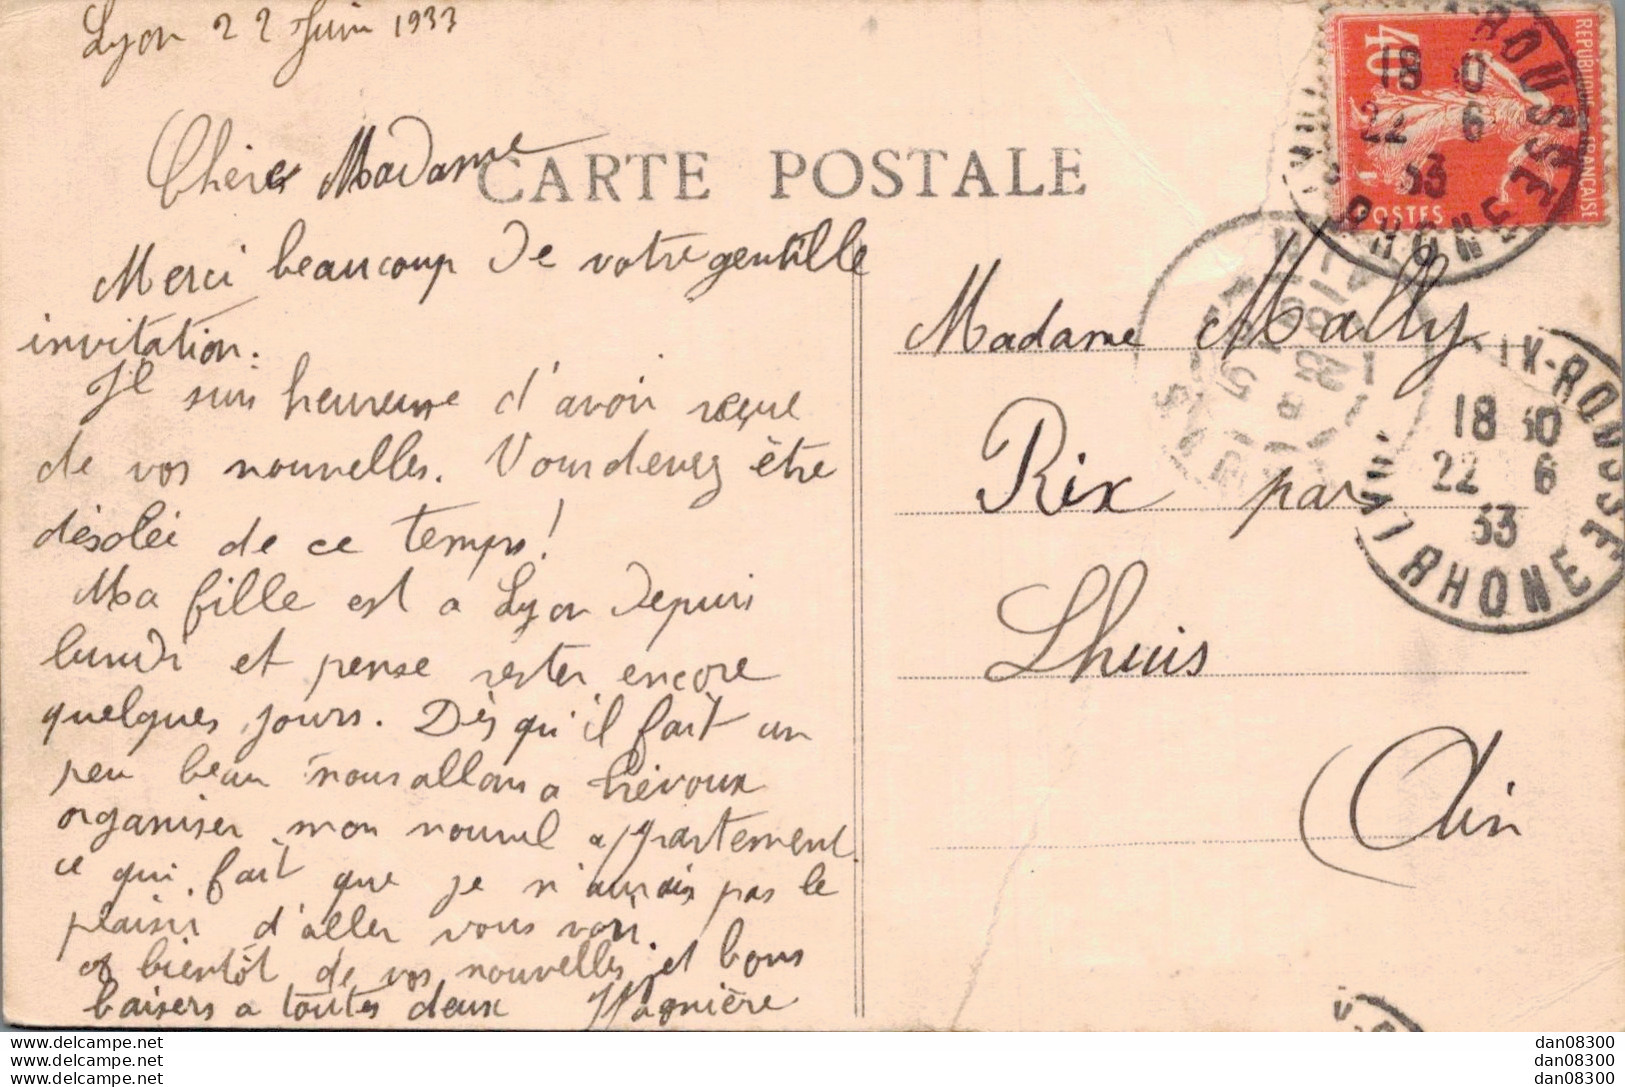 Lyon 22 Juin 1933
Chère Madame
CARTE POSTALE
Merci beaucoup de votre gentille
invitation.
Je suis heureuse d'avoir reçue
de vos nouvelles. Vous devez être
désolée de ce temps!
Ma fille est a Lyon depuis
lundi et pense rester encore
quelques jours. Dès qu'il fait un
peu beau nous allons a Trévoux
organiser mon nouvel appartement
ce qui fait que je n'aurais pas le
plaisir d'aller vous voir.
a bientôt de vos nouvelles et bons
baisers a toutes deux
Madame Mally
Rix par
Lhuis
Ain
REPUBLIQUE FRANCAISE
40
POSTES
18 30
22 6
33
RHONE
IX-ROUSSE
18 30
22 6
33
RHONE
dan08300
dan08300
dan08300
dan08300
dan08300
dan08300